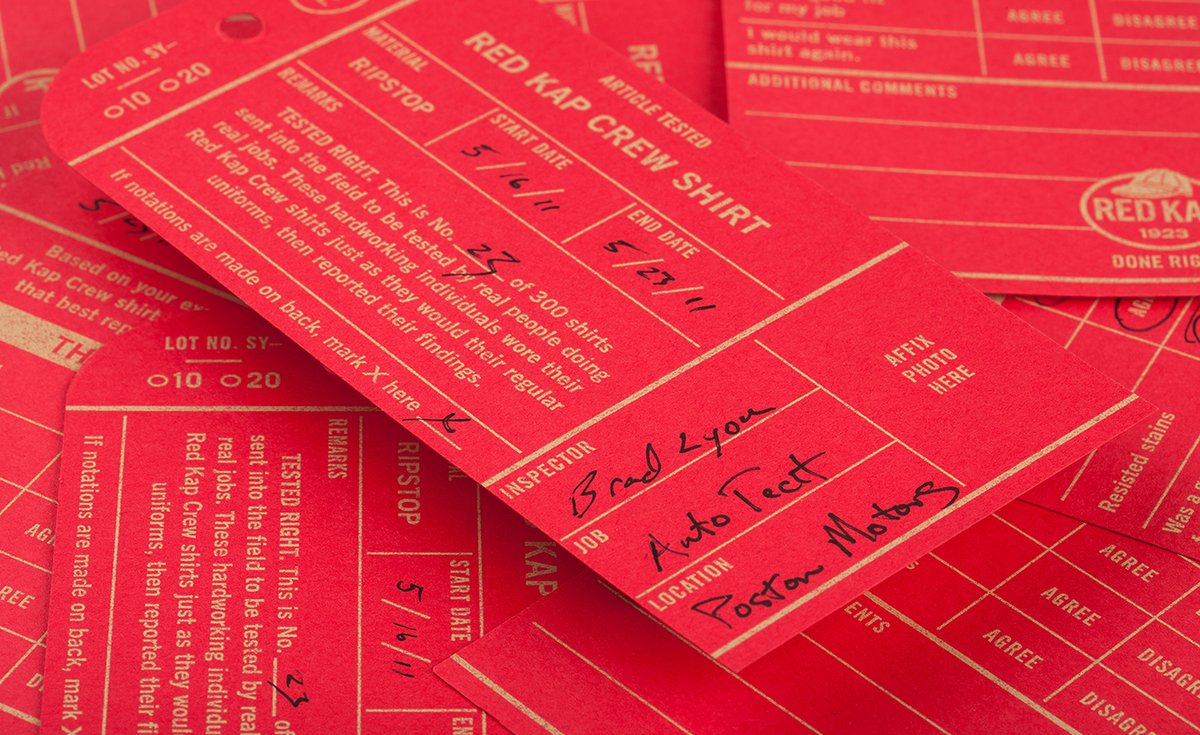 LOT NO. SY–
10 20
ARTICLE TESTED
RED KAP CREW SHIRT
MATERIAL
RIPSTOP
START DATE
5/16/11
END DATE
5/23/11
REMARKS
TESTED RIGHT. This is No. 23 of 300 shirts
sent into the field to be tested by real people doing
real jobs. These hardworking individuals wore their
Red Kap Crew shirts just as they would their regular
uniforms, then reported their findings.
If notations are made on back mark X here
INSPECTOR
Brad Lyon
JOB
Auto Tect
LOCATION
Poston Motors
AFFIX
PHOTO
HERE
for my job
AGREE DISAGREE
I would wear this
shirt again.
AGREE DISAGREE
ADDITIONAL COMMENTS
RED KA
1923
DONE RIG
Based on your ex
ed Kap Crew shirt
that best re
TH
LOT NO. SY–
10 20
RIPSTOP
START DATE
5/16/11
EN
KAP
REMARKS
TESTED RIGHT. This is No. 23 of
sent into the field to be tested by real
real jobs. These hardworking individu
Red Kap Crew shirts just as they woul
uniforms, then reported their fi
If notations are made on back, mark X
Resisted stains
AGREE
AGREE DISAG
AGREE DISAGR
DISAGREE
ENTS